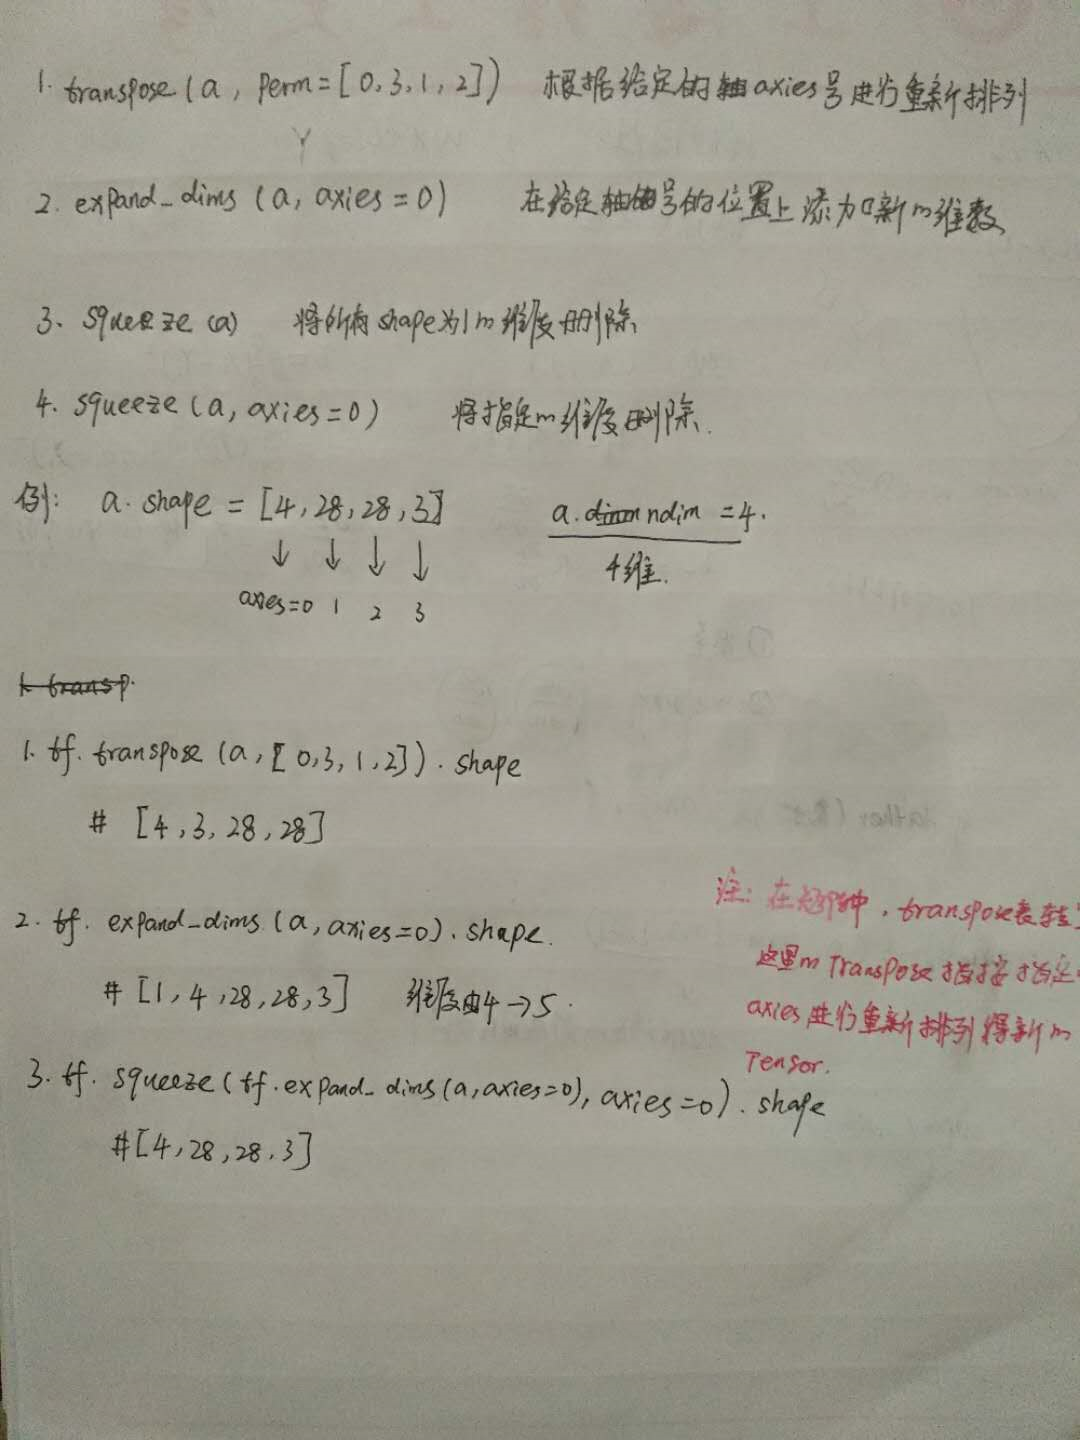 1. transpose (a, perm=[0,3,1,2]) 根据给定的轴axies号进行重新排列
2. expand_dims (a, axies=0) 在给定轴号的位置上添加新的维数
3. squeeze (a) 将所有shape为1的维度删除
4. squeeze (a, axies=0) 将指定的维度删除.
例: a.shape = [4,28,28,3] a.ndim =4.
↓ ↓ ↓ ↓ 4维.
axies=0 1 2 3
1. transp.
1. tf.transpose (a,[0,3,1,2]).shape
# [4,3,28,28]
2. tf.expand_dims (a,axies=0).shape.
# [1,4,28,28,3] 维度由4→5.
3. tf.squeeze(tf.expand_dims(a,axies=0),axies=0).shape
#[4,28,28,3]
注: 在矩阵中,transpose表转
这里的Transpose指按指定
axies进行重新排列得新的
Tensor.